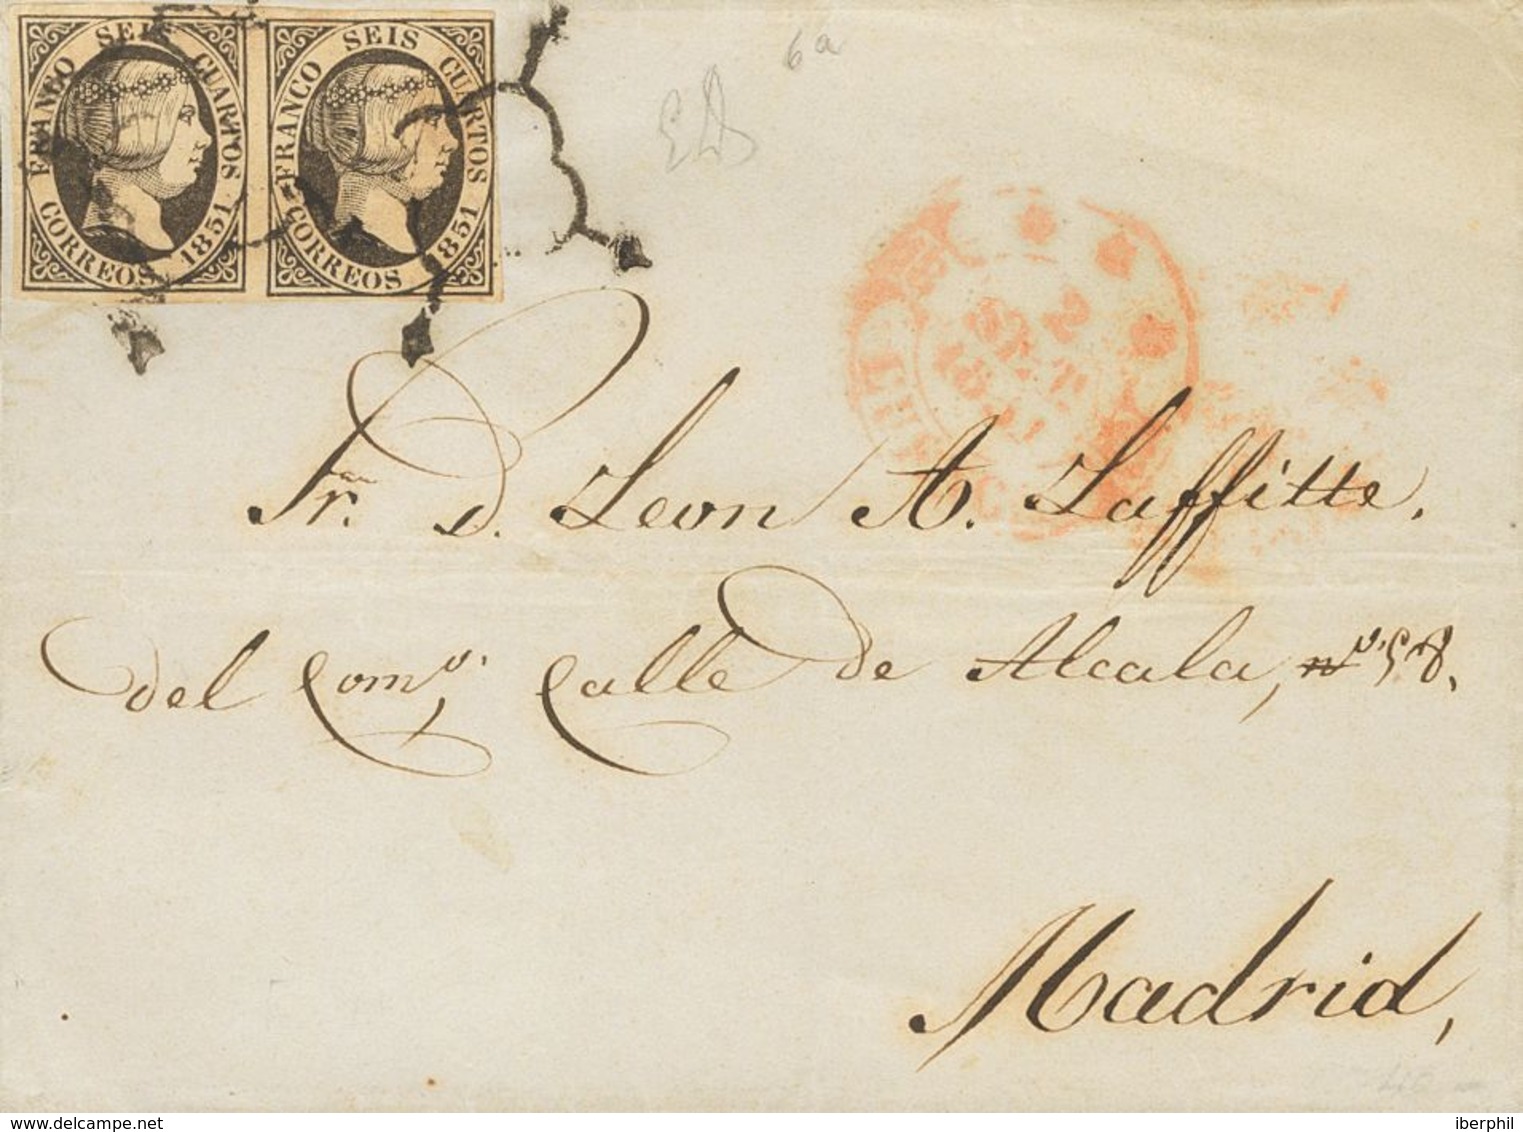 FRANCO SEIS CUARTOS
CORREOS 1851
FRANCO SEIS CUARTOS
CORREOS 1851
6a
Sr. d. Leon A. Laffitte.
del Comº, Calle de Alcala, nº 58.
Madrid,
delcampe.net
iberphil